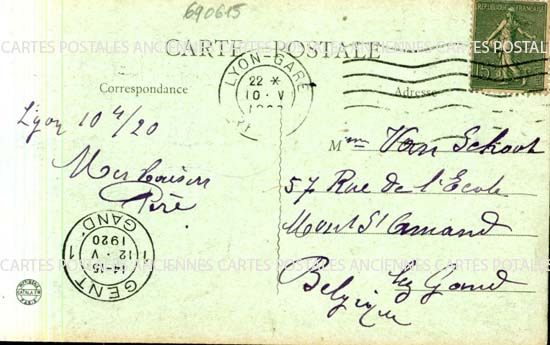 690615
CARTE POSTALE
Correspondance
Adresse
LYON-GARE
22 *
10 · V
REPUBLIQUE FRANÇAISE
15 c
Lyon 10 4/20
Père
Mme Van Schoot
57 Rue de l'Ecole
Mont St Amand
lez Gand
Belgique
GENT 1
14-15
12 V
1920
1 GAND
CARTES POSTALES ANCIENNES CARTES POSTALES ANCIENNES CARTES POSTALES
CARTES POSTALES ANCIENNES CARTES POSTALES